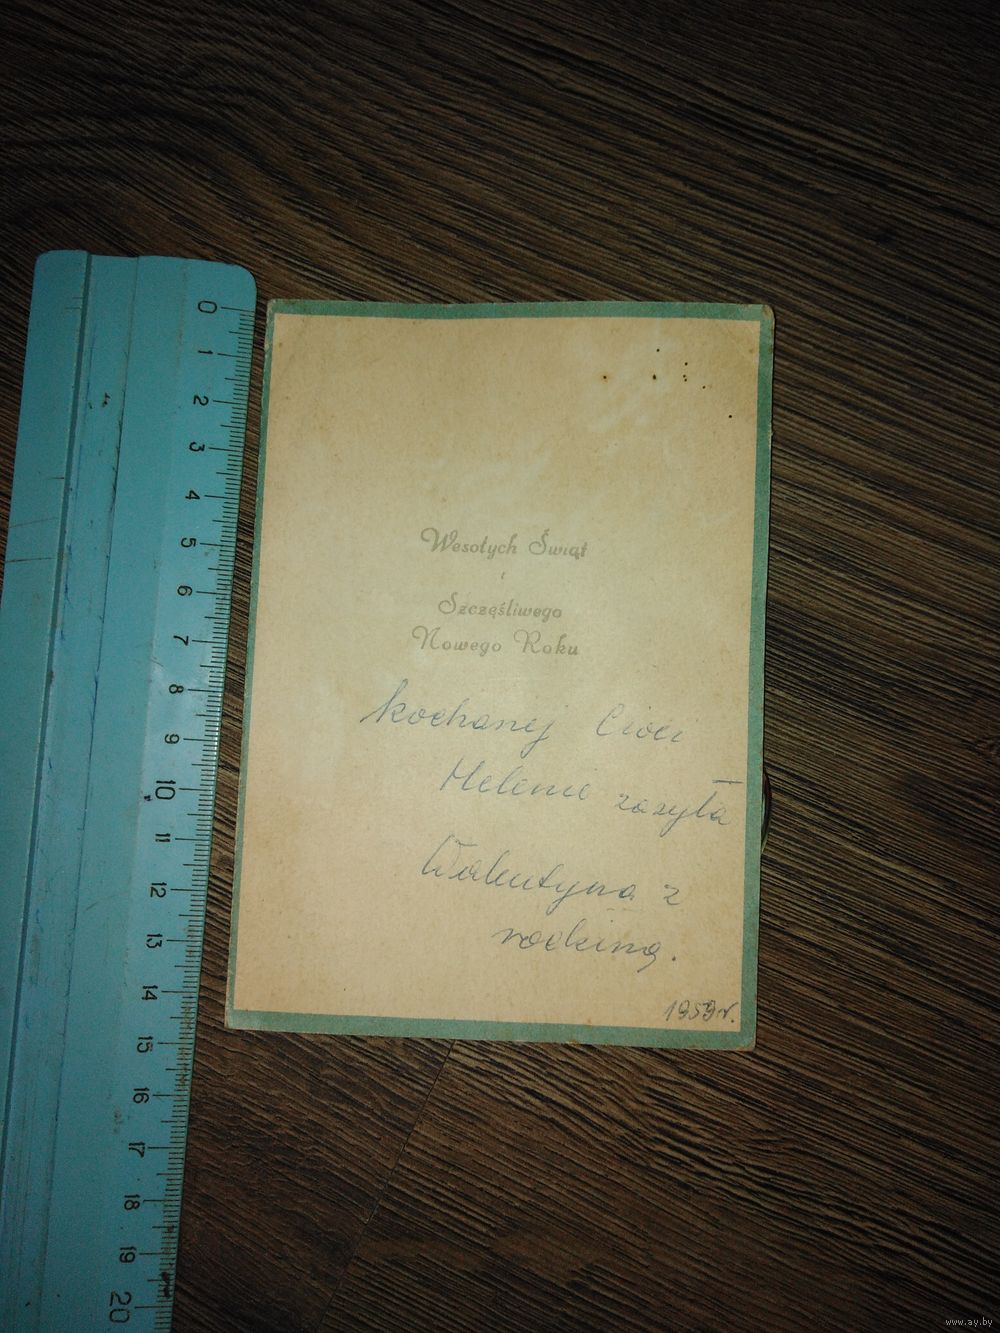 Wesołych Świąt
i
Szczęśliwego
Nowego Roku
kochanej Cioci
Helenie zasyła
Walentyna z
rodziną.
1959 r.
0
1
2
3
4
5
6
7
8
9
10
11
12
13
14
15
16
17
18
19
20
www.ay.by